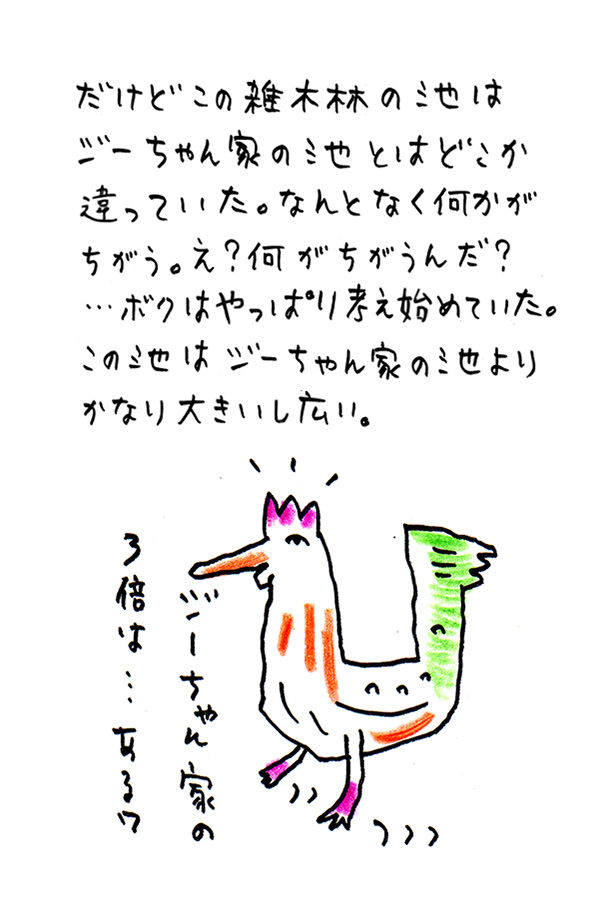 だけどこの雑木林の池は
ジーちゃん家の池とはどこか
違っていた。なんとなく何かが
ちがう。え?何がちがうんだ?
…ボクはやっぱり考え始めていた。
この池はジーちゃん家の池より
かなり大きいし広い。
ジーちゃん家の
3倍は…ある?